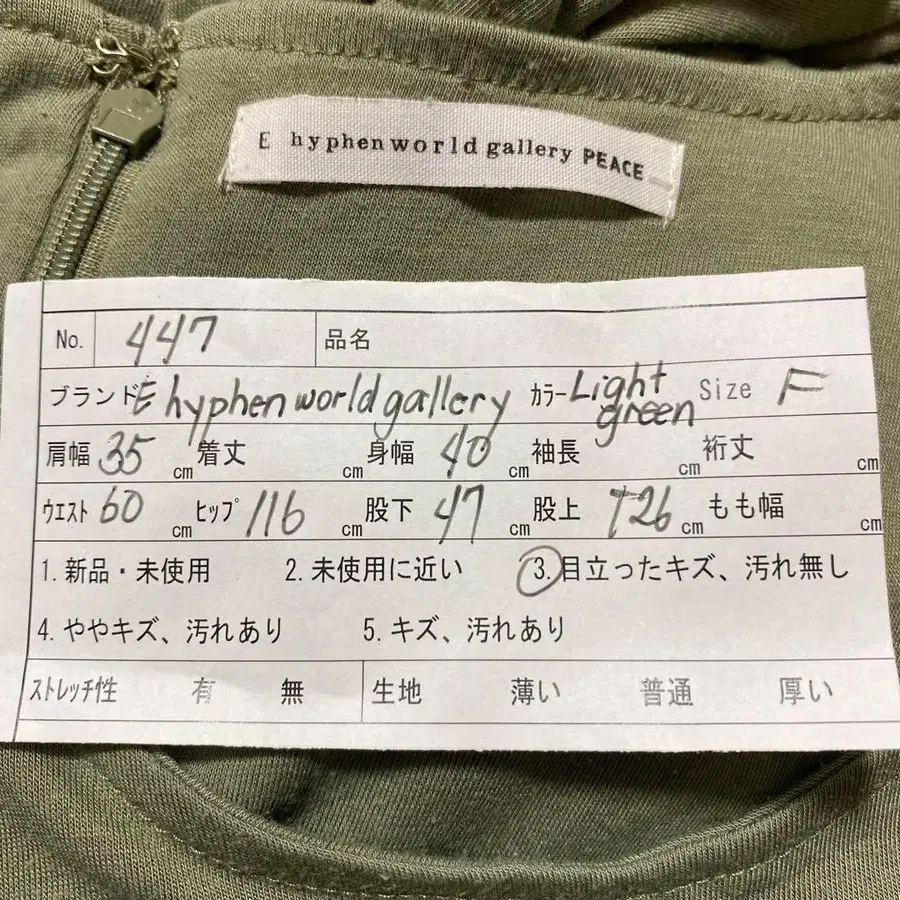 E hyphen world gallery PEACE
No. 447 品名
ブランド E hyphen world gallery カラー Light green Size F
肩幅 35 cm 着丈 cm 身幅 40 cm 袖長 cm 裄丈 cm
ウエスト 60 cm ヒップ 116 cm 股下 47 cm 股上 T26 cm もも幅 cm
1. 新品・未使用 2. 未使用に近い 3. 目立ったキズ、汚れ無し
4. ややキズ、汚れあり 5. キズ、汚れあり
ストレッチ性 有 無 生地 薄い 普通 厚い